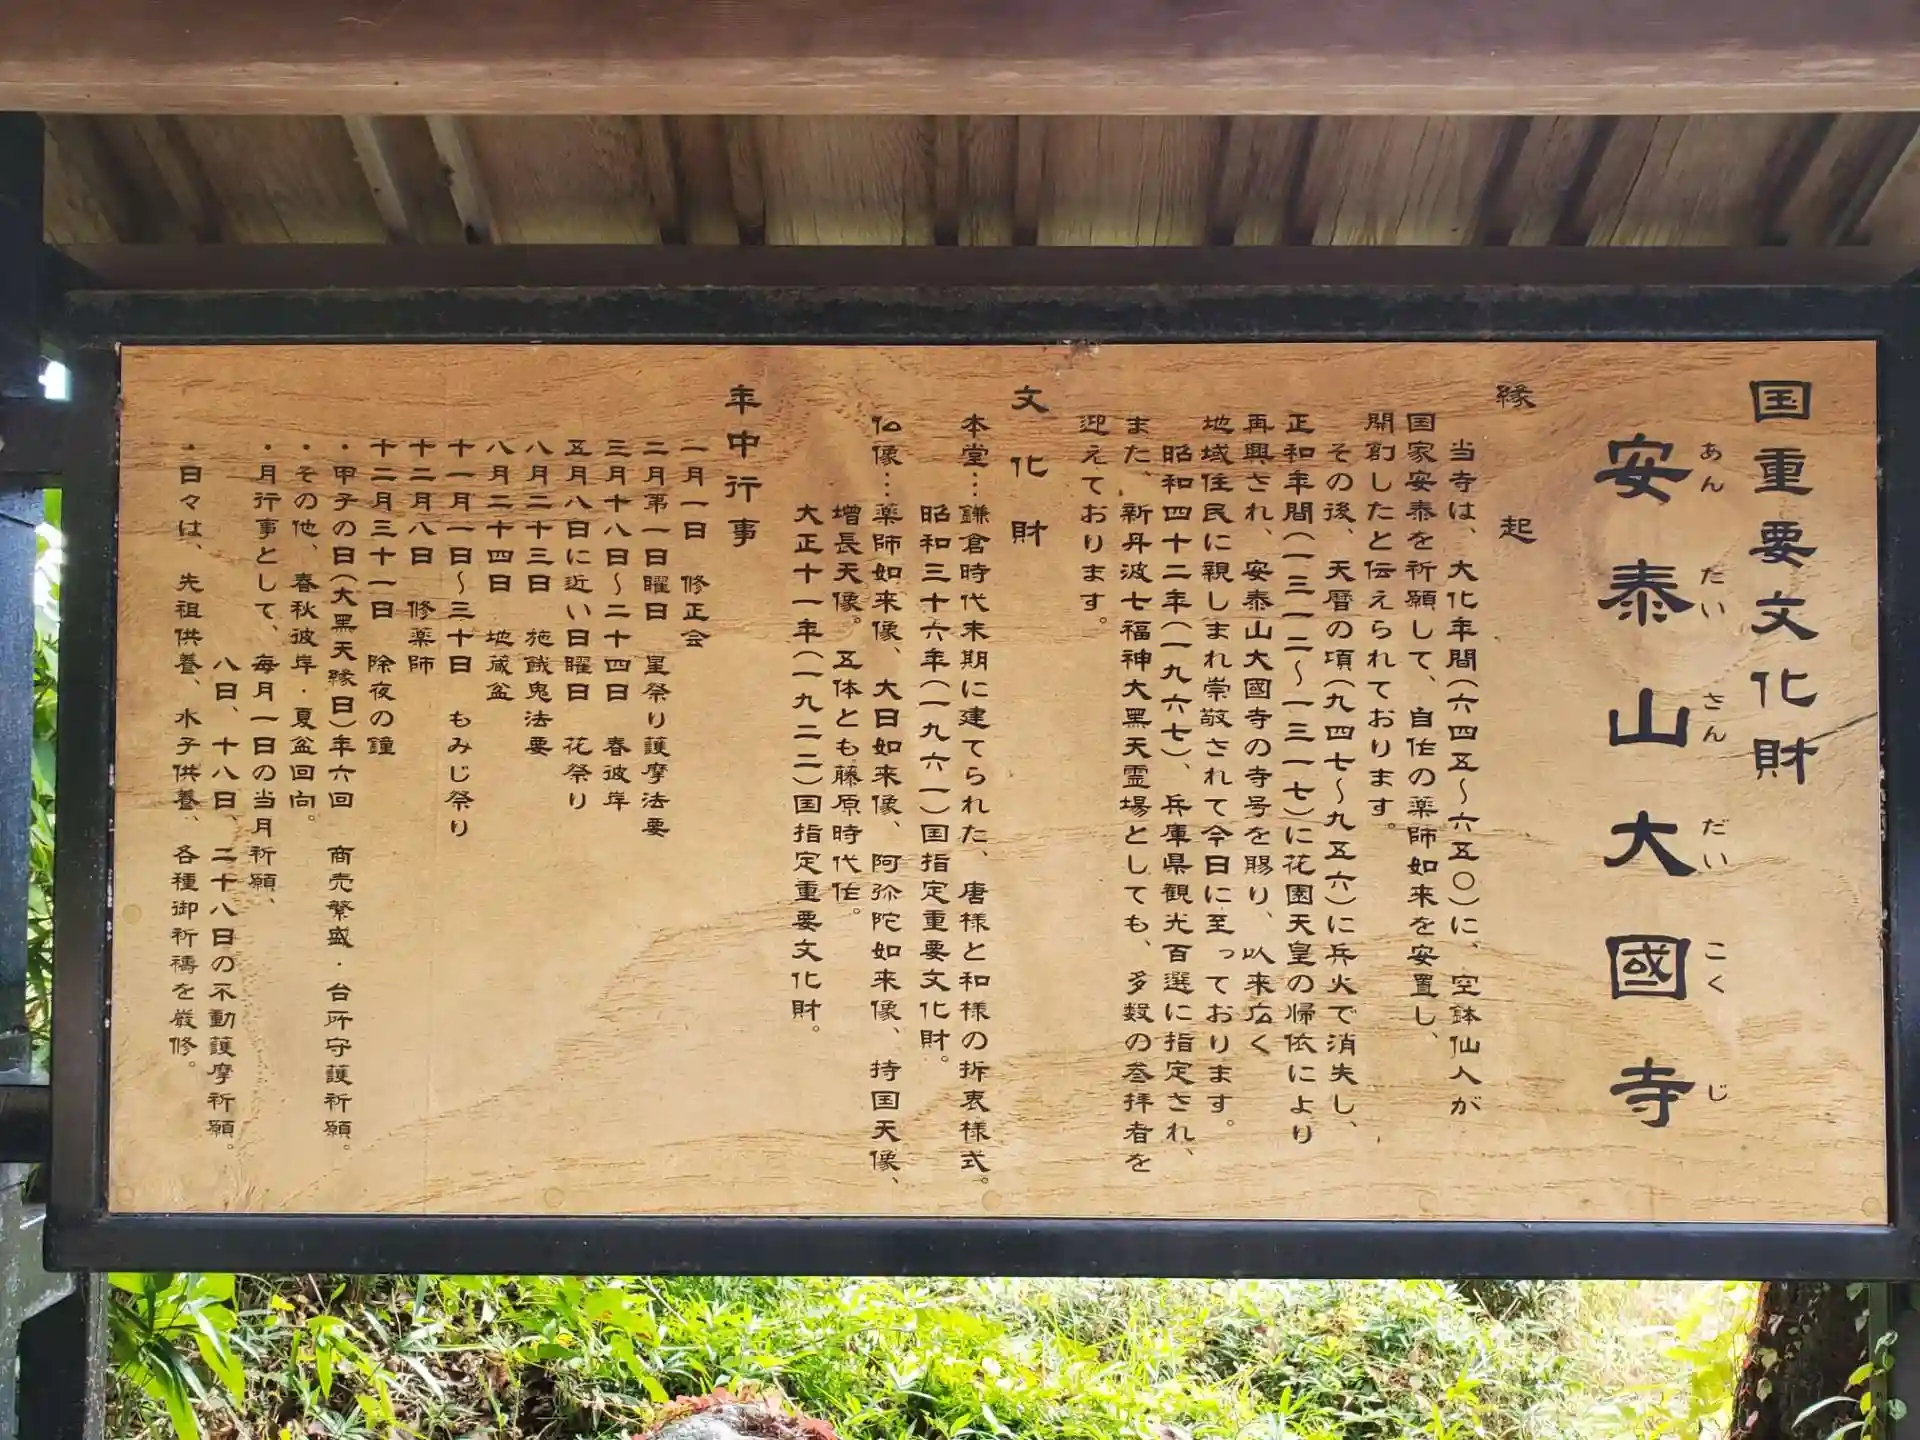 国重要文化財
安泰山大國寺
あんたいさんだいこくじ
縁起
当寺は、大化年間(六四五～六五〇)に、空鉢仙人が
国家安泰を祈願して、自作の薬師如来を安置し、
開創したと伝えられております。
その後、天暦の項(九四七～九五六)に兵火で消失し、
正和年間(一三一二～一三一七)に花園天皇の帰依により
再興され、安泰山大國寺の寺号を賜り、以来広く
地域住民に親しまれ崇敬されて今日に至っております。
昭和四十二年(一九六七)、兵庫県観光百選に指定され、
また、新丹波七福神大黒天霊場としても、多数の参拝者を
迎えております。
文化財
本堂…鎌倉時代末期に建てられた、唐様と和様の折衷様式。
昭和三十六年(一九六一)国指定重要文化財。
仏像…薬師如来像、大日如来像、阿弥陀如来像、持国天像、
増長天像。五体とも藤原時代作。
大正十一年(一九二二)国指定重要文化財。
年中行事
一月一日　修正会
二月第一日曜日　星祭り護摩法要
三月十八日～二十四日　春彼岸
五月八日に近い日曜日　花祭り
八月二十三日　施餓鬼法要
八月二十四日　地蔵盆
十一月一日～三十日　もみじ祭り
十二月八日　修薬師
十二月三十一日　除夜の鐘
・甲子の日(大黒天縁日)年六回　商売繁盛・台所守護祈願。
・その他、春秋彼岸・夏盆回向。
・月行事として、毎月一日の当月祈願、
八日、十八日、二十八日の不動護摩祈願。
・日々は、先祖供養、水子供養、各種御祈祷を厳修。